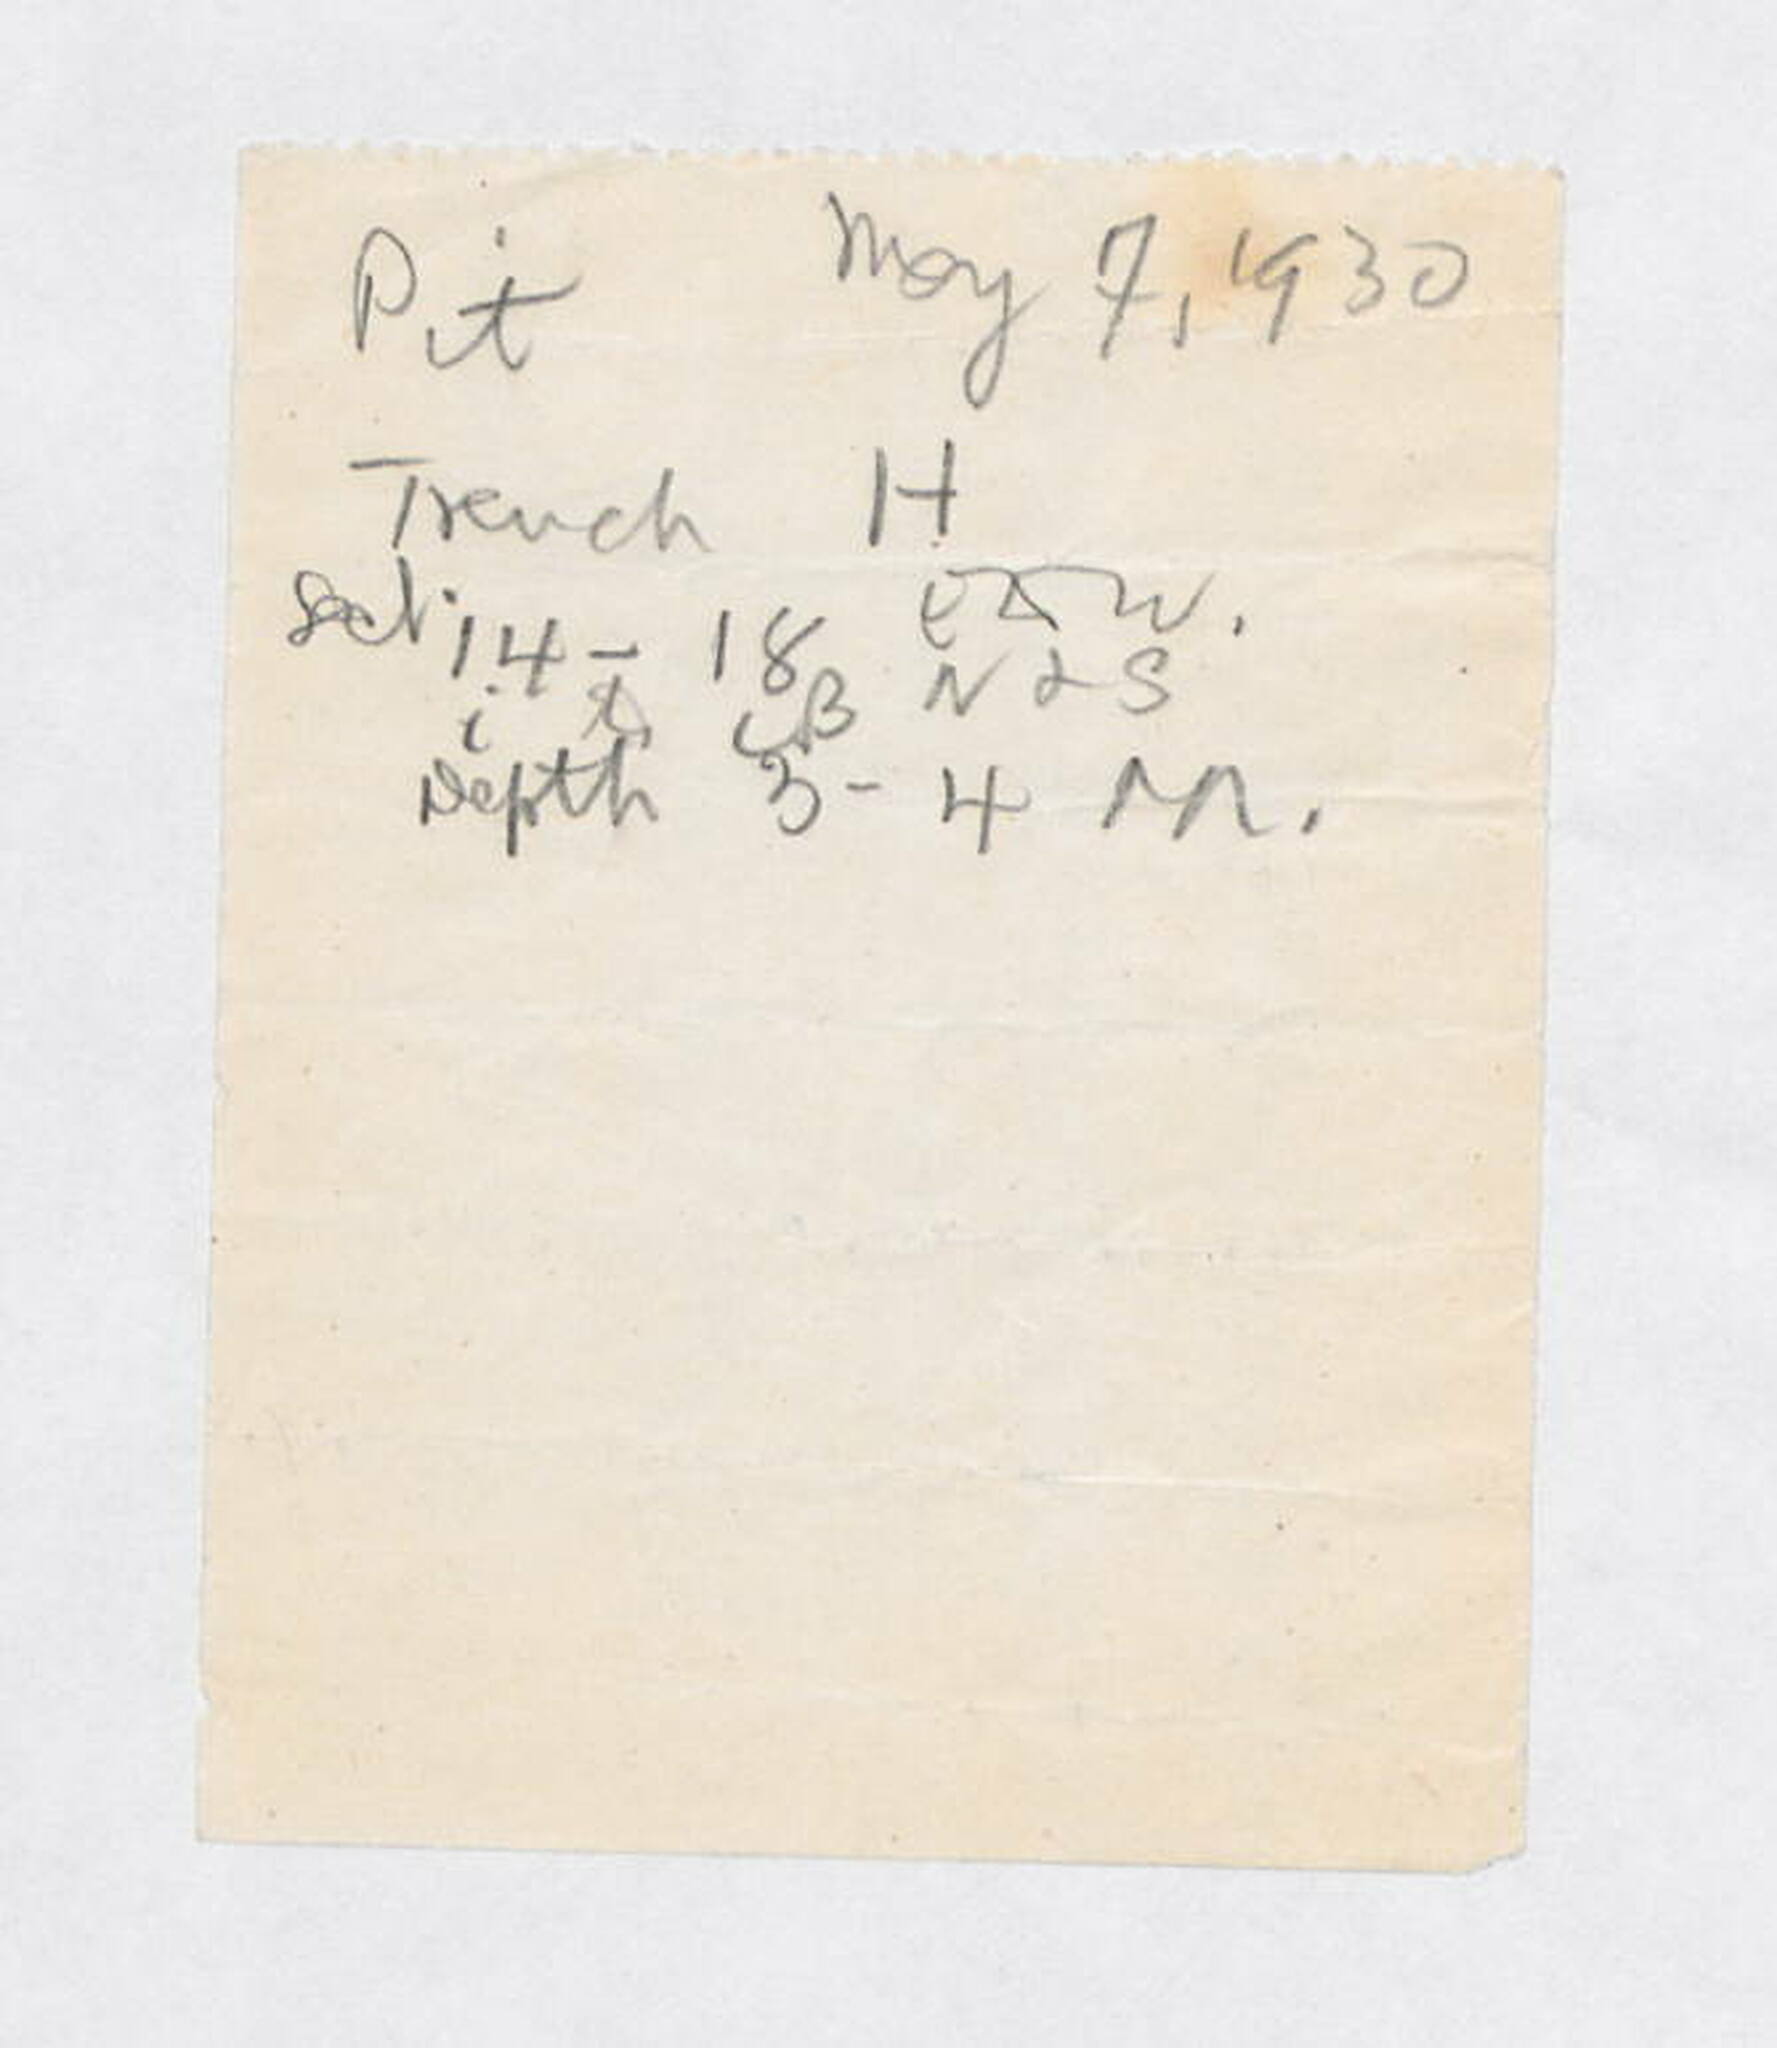 Pit May 7, 1930
Trench H
Sect. 14 - 18 E & W.
N & S
Depth 3 - 4 m.